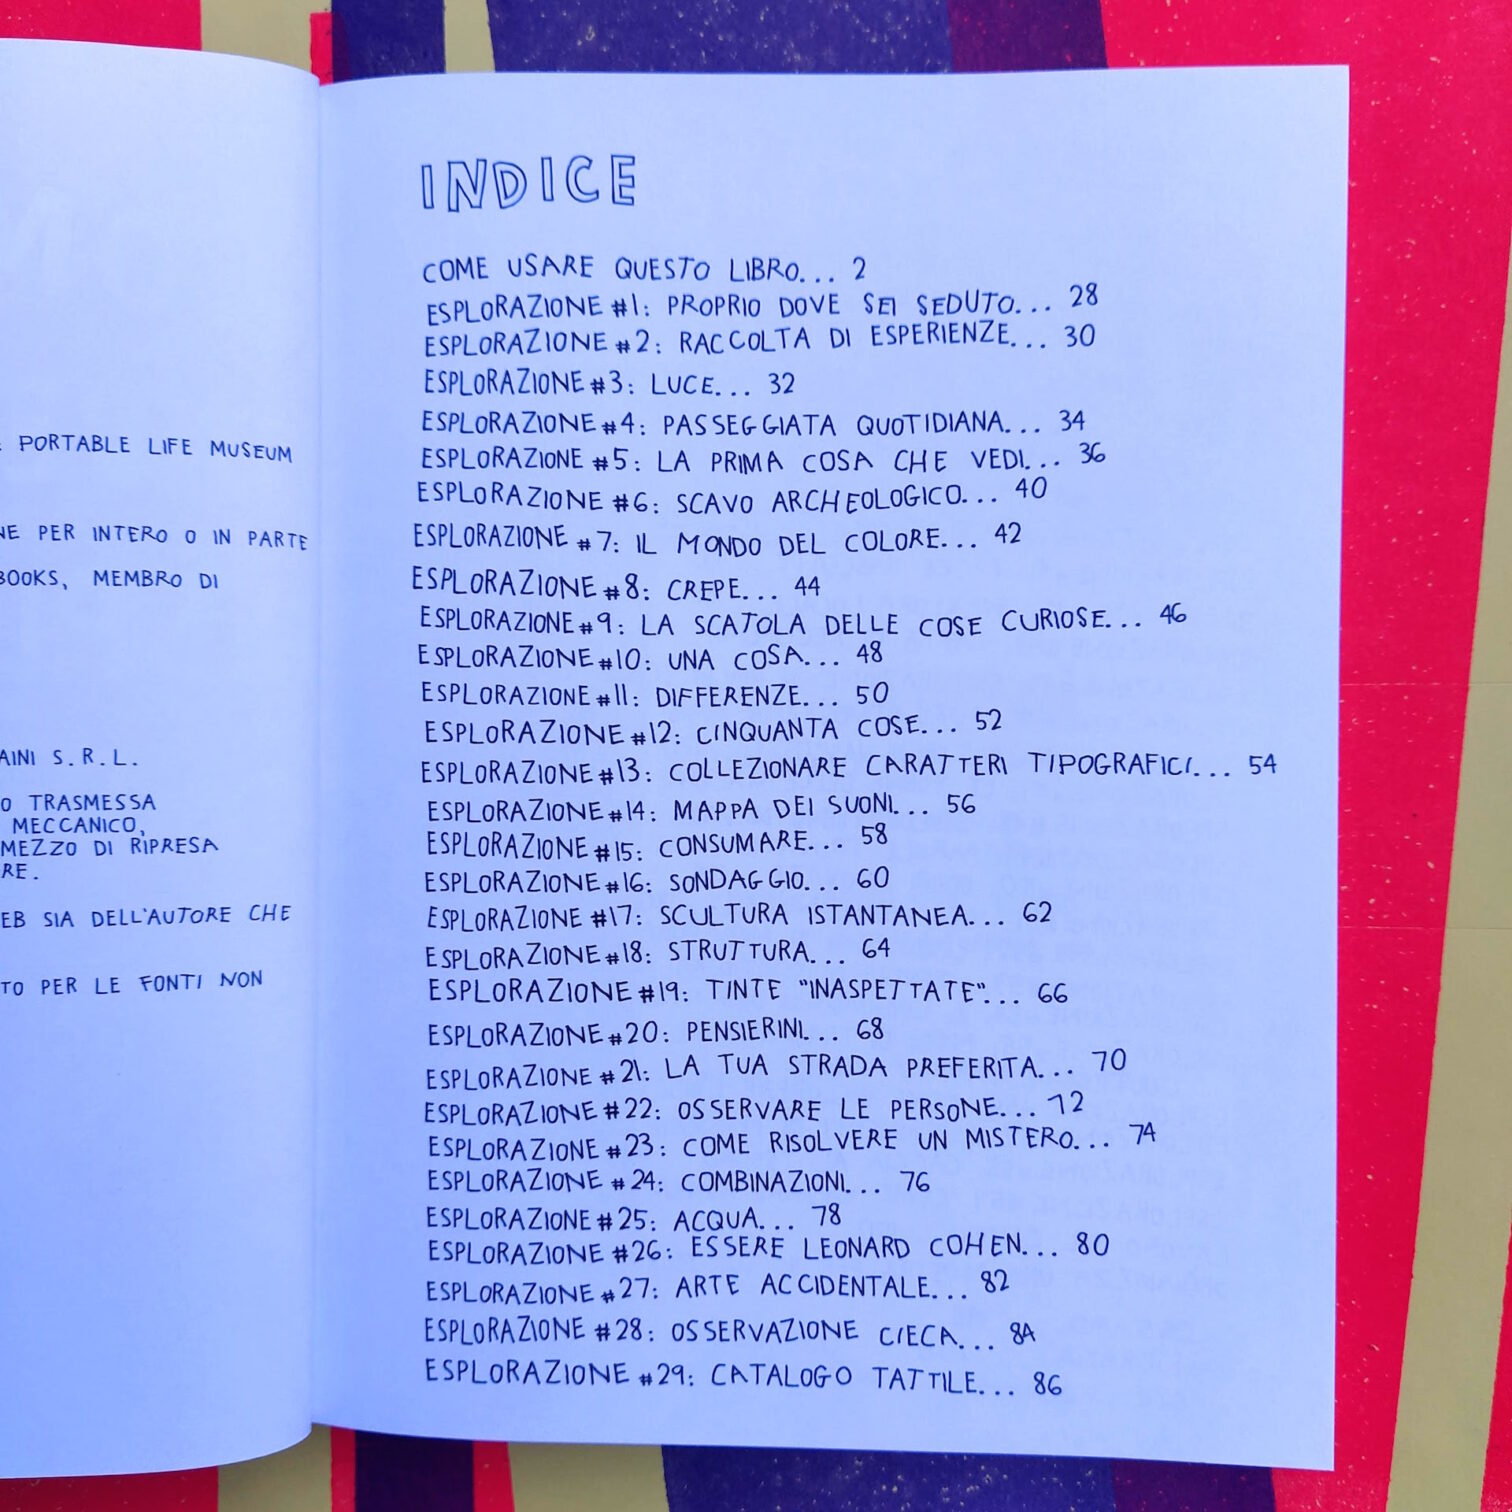 PORTABLE LIFE MUSEUM
PER INTERO O IN PARTE
BOOKS, MEMBRO DI
S.R.L.
O TRASMESSA
MECCANICO,
MEZZO DI RIPRESA
SIA DELL'AUTORE CHE
PER LE FONTI NON
INDICE
COME USARE QUESTO LIBRO... 2
ESPLORAZIONE #1: PROPRIO DOVE SEI SEDUTO... 28
ESPLORAZIONE #2: RACCOLTA DI ESPERIENZE... 30
ESPLORAZIONE #3: LUCE... 32
ESPLORAZIONE #4: PASSEGGIATA QUOTIDIANA... 34
ESPLORAZIONE #5: LA PRIMA COSA CHE VEDI... 36
ESPLORAZIONE #6: SCAVO ARCHEOLOGICO... 40
ESPLORAZIONE #7: IL MONDO DEL COLORE... 42
ESPLORAZIONE #8: CREPE... 44
ESPLORAZIONE #9: LA SCATOLA DELLE COSE CURIOSE... 46
ESPLORAZIONE #10: UNA COSA... 48
ESPLORAZIONE #11: DIFFERENZE... 50
ESPLORAZIONE #12: CINQUANTA COSE... 52
ESPLORAZIONE #13: COLLEZIONARE CARATTERI TIPOGRAFICI... 54
ESPLORAZIONE #14: MAPPA DEI SUONI... 56
ESPLORAZIONE #15: CONSUMARE... 58
ESPLORAZIONE #16: SONDAGGIO... 60
ESPLORAZIONE #17: SCULTURA ISTANTANEA... 62
ESPLORAZIONE #18: STRUTTURA... 64
ESPLORAZIONE #19: TINTE "INASPETTATE"... 66
ESPLORAZIONE #20: PENSIERINI... 68
ESPLORAZIONE #21: LA TUA STRADA PREFERITA... 70
ESPLORAZIONE #22: OSSERVARE LE PERSONE... 72
ESPLORAZIONE #23: COME RISOLVERE UN MISTERO... 74
ESPLORAZIONE #24: COMBINAZIONI... 76
ESPLORAZIONE #25: ACQUA... 78
ESPLORAZIONE #26: ESSERE LEONARD COHEN... 80
ESPLORAZIONE #27: ARTE ACCIDENTALE... 82
ESPLORAZIONE #28: OSSERVAZIONE CIECA... 84
ESPLORAZIONE #29: CATALOGO TATTILE... 86